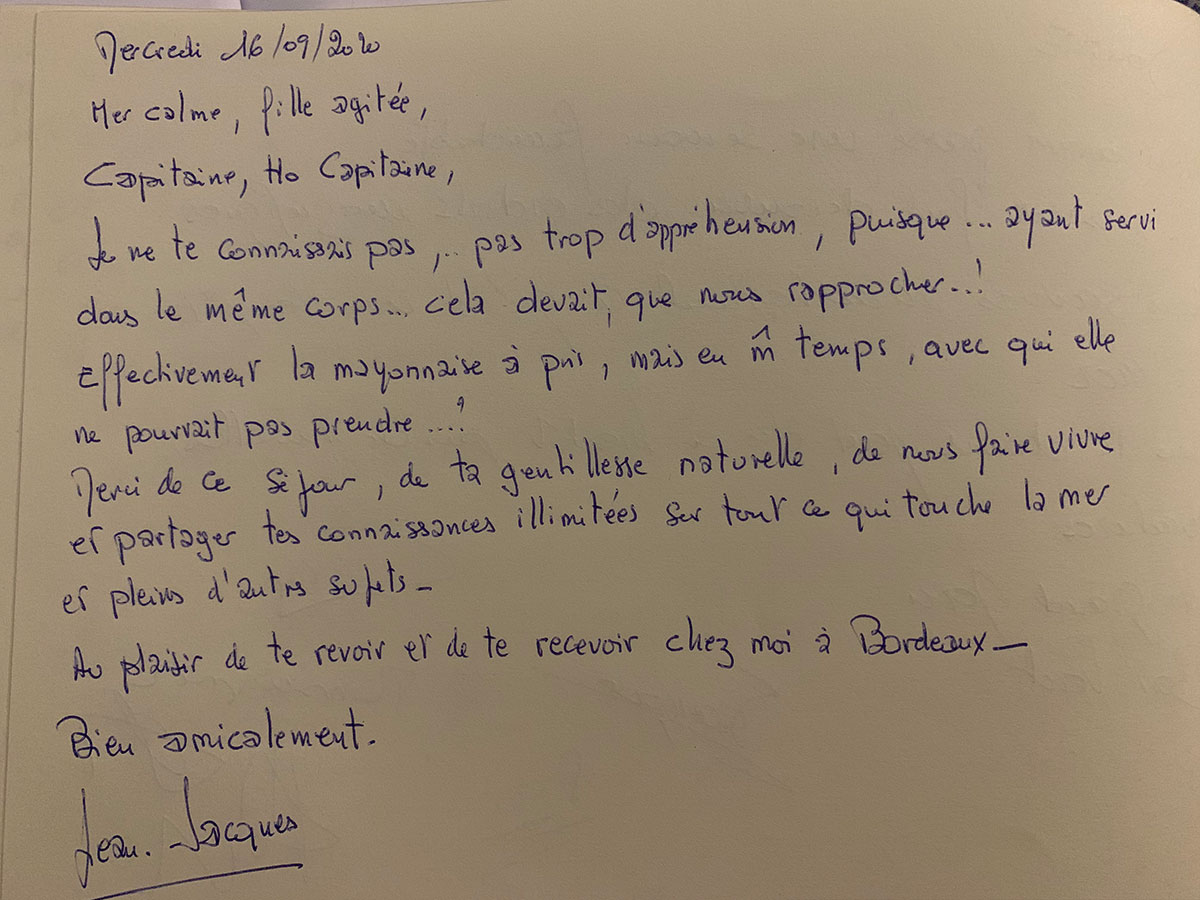 Mercredi 16/09/2020
Mer calme, fille agitée,
Capitaine, Ho Capitaine,
Je ne te connaissais pas,.. pas trop d'appréhension, puisque... ayant servi
dans le même corps... cela devait, que nous rapprocher..!
Effectivement la mayonnaise à pris, mais en m̂ temps, avec qui elle
ne pourrait pas prendre....?
Merci de ce séjour, de ta gentillesse naturelle, de nous faire vivre
et partager tes connaissances illimitées sur tout ce qui touche la mer
et pleins d'autres sujets_
Au plaisir de te revoir et de te recevoir chez moi à Bordeaux_
Bien amicalement.
Jean. Jacques